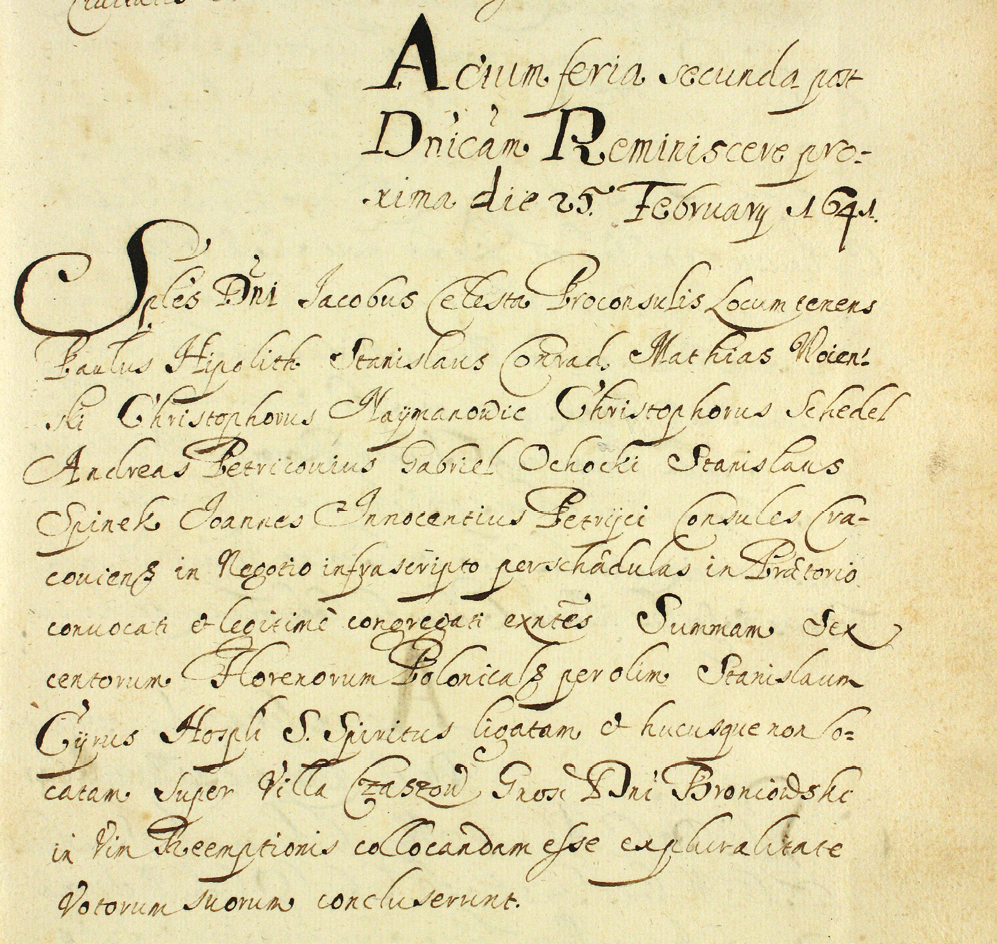 Actum feria secunda post
Dnicam Reminiscere pro-
xima die 25. February 1641.
Sples Dni Jacobus Celesta Proconsulis Locumtenens
Paulus Hipolith Stanislaus Conrad, Mathias Woien-
ski Christophorus Naymanowic Christophorus Schedel
Andreas Petricouius Gabriel Ochocki Stanislaus
Spinek Joannes Innocentius Petrijci Consules Cra-
couiens in Negotio infrascripto per schædulas in Prætorio
conuocati et legitime congregati exntes Summam Sex
centorum Florenorum Polonical per olim Stanislaum
Cyrus Hospli S. Spiritus ligatam et hucusque non lo-
catam super Villa Czaszow Gnosi Dni Broniowski
in Vim Reemptionis collocandam esse ex pluralitate
Votorum suorum concluserunt.